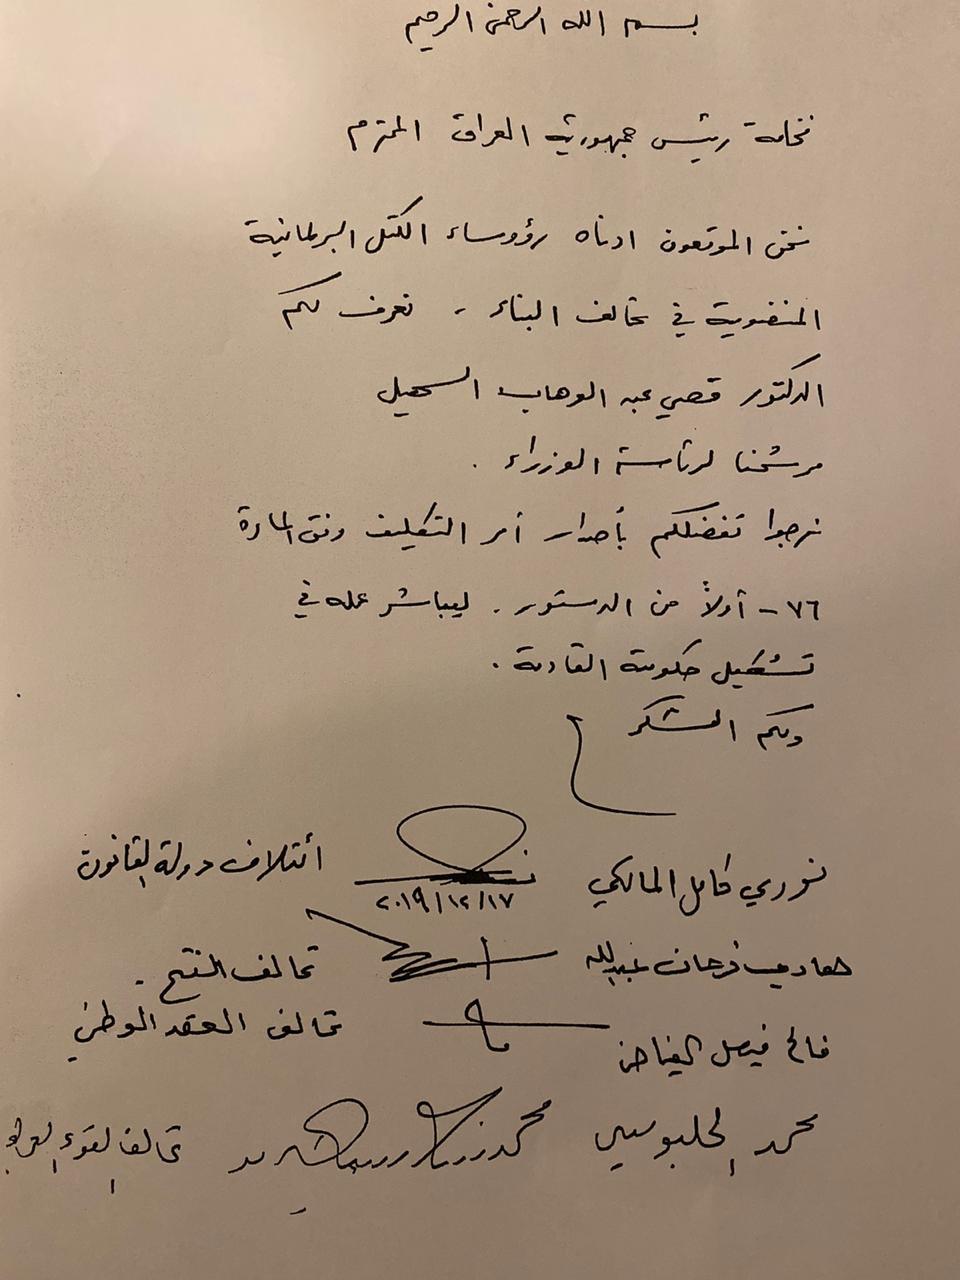 بسم الله الرحمن الرحيم
فخامة رئيس جمهورية العراق المحترم
نحن الموقعون ادناه رؤوساء الكتل البرلمانية
المنضوية في تحالف البناء، نعرف لكم
الدكتور قصي عبد الوهاب السهيل
مرشحنا لرئاسة الوزراء.
نرجوا تفضلكم بأصدار أمر التكليف وفق المادة
٧٦ - أولاً من الدستور. ليباشر عمله في
تشكيل حكومة القادمة.
ولكم الشكر
نوري كامل المالكي ائتلاف دولة القانون
٢٠١٩/١٢/١٧
هادي فرحان عبدالله تحالف الفتح.
فالح فيصل الفياض تحالف العقد الوطني
محمد الحلبوسي تحالف القوى